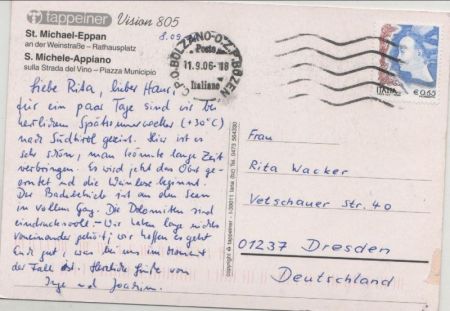 tappeiner Vision 805
St. Michael-Eppan
an der Weinstraße – Rathausplatz
S. Michele-Appiano
sulla Strada del Vino – Piazza Municipio
8.09.
Liebe Rita, lieber Hans,
für ein paar Tage sind wir bei
herrlichem Spätsommerwetter (+30°C)
nach Südtirol gereist. Hier ist es
sehr schön, man könnte lange Zeit
verbringen. Es wird jetzt das Obst ge-
erntet und die Weinlese beginnt.
Der Badebetrieb ist an den Seen
in vollem Gang. Die Dolomiten sind
eindrucksvoll. – Wir haben lange nichts
voneinander gehört, wir hoffen es geht
Euch gut, was bei uns im Moment
der Fall ist. Herzliche Grüße von
Inge und Joachim.
C.P.O. BOLZANO-O.Z.P. BOZEN
Poste
11.9.06-18
Italiane
ITALIA
€0,65
copyright © tappeiner - I-39011 lana (bz) Tel. 0473 564300
Frau
Rita Wacker
Vetschauer Str. 40
01237 Dresden
Deutschland